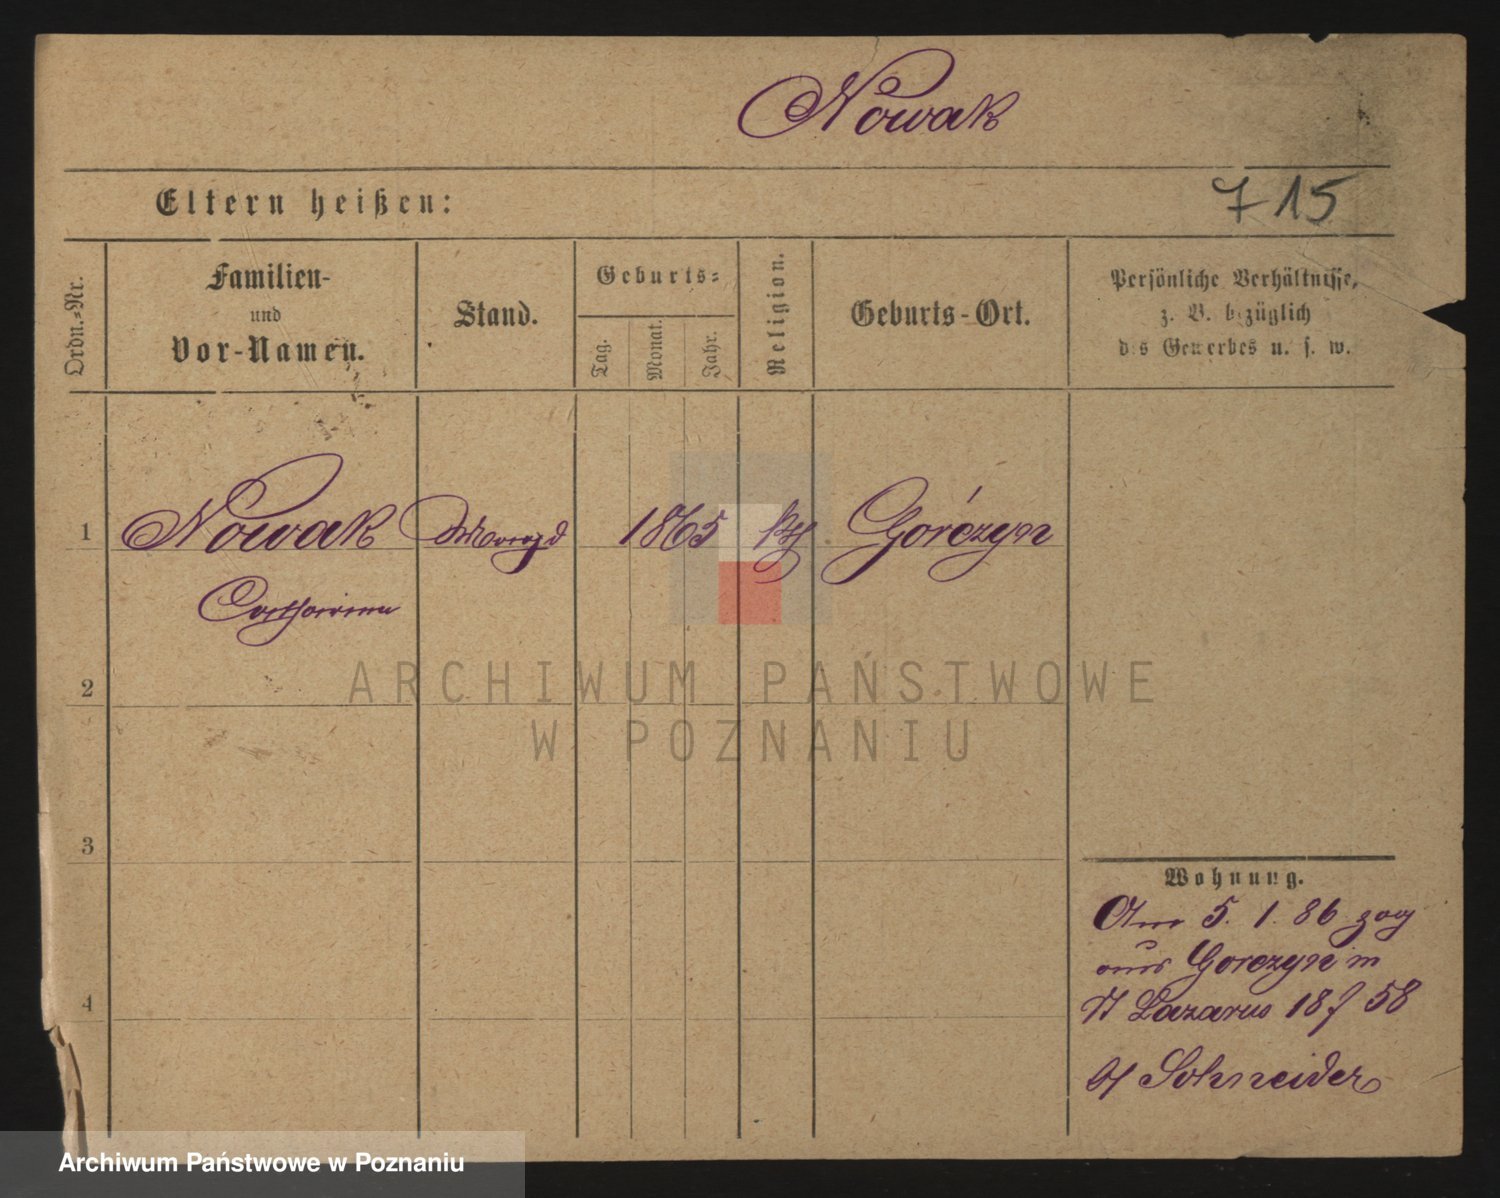 Nowak
Eltern heißen:
715
Ordn.-Nr.
Familien-
und
Vor-Namen.
Stand.
Geburts-
Tag.
Monat.
Jahr.
Religion.
Geburts-Ort.
Persönliche Verhältnisse,
z. B. bezüglich
des Gewerbes u. s. w.
1 Nowak Magd 1865 kth Gorczyn
Catharina
2
3
4
Wohnung.
Am 5. 1. 86 zog
aus Gorczyn in
St Lazarus 18 f 58
bei Schneider
ARCHIWUM PAŃSTWOWE
W POZNANIU
Archiwum Państwowe w Poznaniu